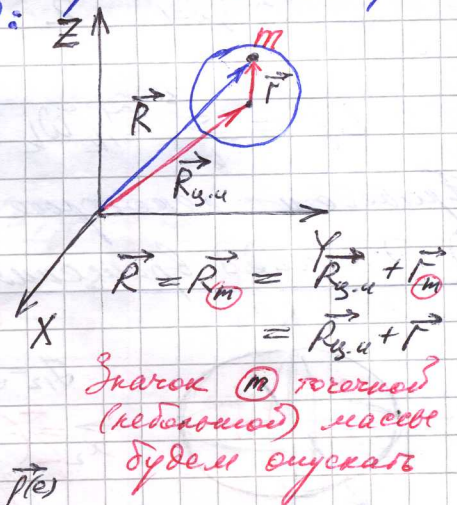 Z
m
r⃗
R⃗
R⃗ц.и
Y
X
R⃗ = R⃗m = R⃗ц.и + r⃗m
= R⃗ц.и + r⃗
Значок m точечной
(небольшой) массы
будем опускать